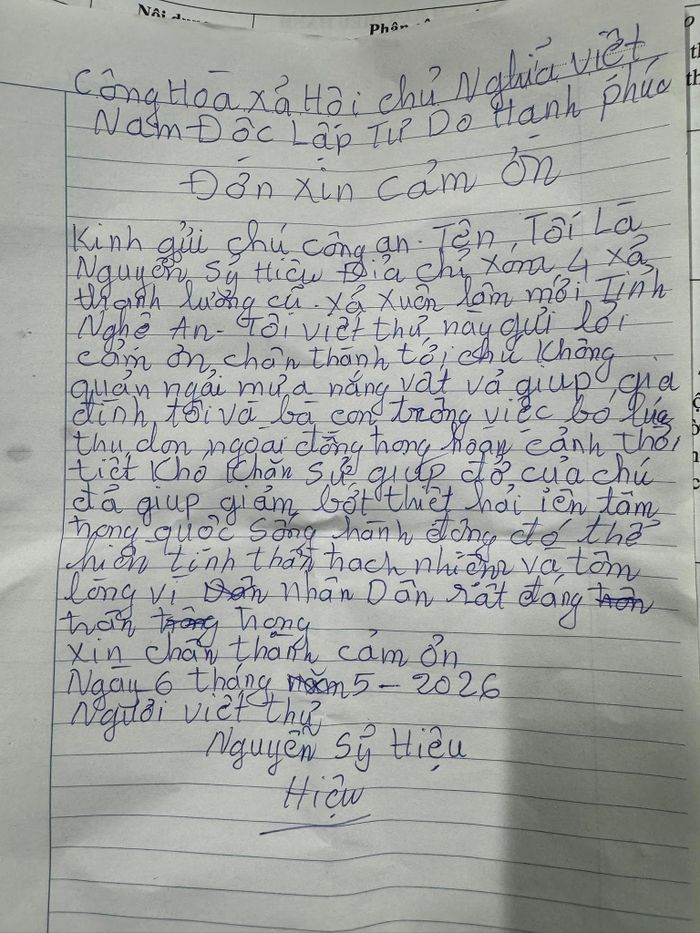 Nội dung
Phân
Công Hòa Xả Hôi chủ Nghĩa Việt
Nam Đôc Lập Tự Do Hạnh phúc
Đớn xin cảm ởn
Kinh gửi chú công an. Tên, Tôi Là
Nguyễn Sỷ Hiêu Địa chỉ xóm 4 xả
thanh lường cũ. xả xuân lâm mới Tỉnh
Nghê An- Tôi viết thử này gửi lời
cảm ởn chân thành tới chú Không
quản ngải mưa nắng vất vả giup gia
đình tôi và bà con trong viêc bó lúa
thu dọn ngoài đồng hong hoàn cảnh thời
tiết khó khăn sử giup đở của chú
đả giup giảm bớt thiêt hai iên tâm
hong quôc sống hành đông đó thể
hiên tinh thần hach nhiêm và tâm
lòng vì nhân Dân rất đáng
trân hong
xin chân thành cảm ởn
Ngày 6 tháng 5 - 2026
Người viết thử
Nguyễn Sỷ Hiệu
Hiệu